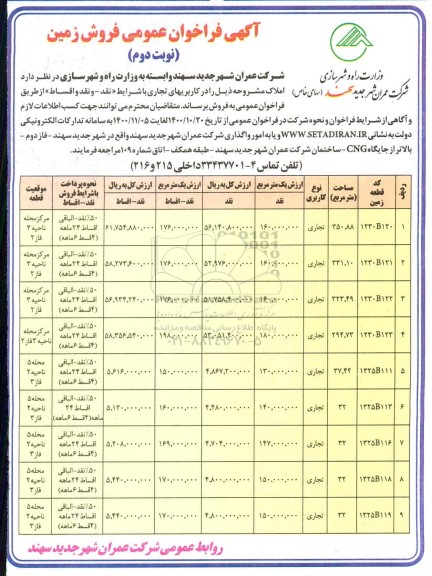 آگهی فراخوان عمومی فروش زمین
(نوبت دوم)
وزارت راه و شهرسازی
شرکت عمران شهر جدید سهند (سهامی خاص)
شرکت عمران شهر جدید سهند وابسته به وزارت راه و شهرسازی در نظر دارد
املاک مشروحه ذیل را در کاربریهای تجاری با شرایط «نقد - و نقد و اقساط» از طریق
فراخوان عمومی به فروش برساند. متقاضیان محترم می توانند جهت کسب اطلاعات لازم
و آگاهی از شرایط فراخوان و نحوه شرکت در فراخوان عمومی از تاریخ ۱۴۰۰/۱۰/۲۰ لغایت ۱۴۰۰/۱۱/۰۵ به سامانه تدارکات الکترونیکی
دولت به نشانی WWW.SETADIRAN.IR و یا به امور واگذاری شرکت عمران شهر جدید سهند واقع در شهر جدید سهند - فاز دوم -
بالاتر از جایگاه CNG - ساختمان شرکت عمران شهر جدید سهند - طبقه همکف - اتاق شماره ۱۰۹ مراجعه فرمایند.
(تلفن تماس ۴-۳۳۴۳۷۷۰۱ داخلی ۲۱۵ و ۲۱۶)
ردیف | کد قطعه زمین | مساحت (مترمربع) | نوع کاربری | ارزش یک مترمربع نقد | ارزش کل به ریال نقد | ارزش یک مترمربع نقد - اقساط | ارزش کل به ریال نقد - اقساط | نحوه پرداخت با شرایط فروش نقد - اقساط | موقعیت قطعه
۱ | ۱۲۳۰B۱۲۰ | ۳۵۰,۸۸ | تجاری | ۱۶۰,۰۰۰,۰۰۰ | ۵۶,۱۴۰,۸۰۰,۰۰۰ | ۱۷۶,۰۰۰,۰۰۰ | ۶۱,۷۵۴,۸۸۰,۰۰۰ | ۵۰٪ نقد - الباقی اقساط ۲۴ ماهه (۴ قسط ۶ ماهه) | مرکز محله ناحیه ۳ فاز ۲
۲ | ۱۲۳۰B۱۲۱ | ۳۳۱,۱۰ | تجاری | ۱۶۰,۰۰۰,۰۰۰ | ۵۲,۹۷۶,۰۰۰,۰۰۰ | ۱۷۶,۰۰۰,۰۰۰ | ۵۸,۲۷۳,۶۰۰,۰۰۰ | ۵۰٪ نقد - الباقی اقساط ۲۴ ماهه (۴ قسط ۶ ماهه) | مرکز محله ناحیه ۳ فاز ۲
۳ | ۱۲۳۰B۱۲۲ | ۳۲۳,۴۹ | تجاری | ۱۶۰,۰۰۰,۰۰۰ | ۵۱,۷۵۸,۴۰۰,۰۰۰ | ۱۷۶,۰۰۰,۰۰۰ | ۵۶,۹۳۴,۲۴۰,۰۰۰ | ۵۰٪ نقد - الباقی اقساط ۲۴ ماهه (۴ قسط ۶ ماهه) | مرکز محله ناحیه ۳ فاز ۲
۴ | ۱۲۳۰B۱۲۳ | ۲۹۴,۷۳ | تجاری | ۱۸۰,۰۰۰,۰۰۰ | ۵۳,۰۵۱,۴۰۰,۰۰۰ | ۱۹۸,۰۰۰,۰۰۰ | ۵۸,۳۵۶,۵۴۰,۰۰۰ | ۵۰٪ نقد - الباقی اقساط ۲۴ ماهه (۴ قسط ۶ ماهه) | مرکز محله ناحیه ۳ فاز ۲
۵ | ۱۳۲۵B۱۱۱ | ۳۷,۴۴ | تجاری | ۱۳۰,۰۰۰,۰۰۰ | ۴,۸۶۷,۲۰۰,۰۰۰ | ۱۵۰,۰۰۰,۰۰۰ | ۵,۶۱۶,۰۰۰,۰۰۰ | ۵۰٪ نقد - الباقی اقساط ۲۴ ماهه (۴ قسط ۶ ماهه) | محله ۵ ناحیه ۲ فاز ۳
۶ | ۱۳۲۵B۱۱۳ | ۳۲ | تجاری | ۱۴۰,۰۰۰,۰۰۰ | ۴,۴۸۰,۰۰۰,۰۰۰ | ۱۶۰,۰۰۰,۰۰۰ | ۵,۱۲۰,۰۰۰,۰۰۰ | ۵۰٪ نقد - الباقی اقساط ۲۴ ماهه (۴ قسط ۶ ماهه) | محله ۵ ناحیه ۲ فاز ۳
۷ | ۱۳۲۵B۱۱۶ | ۳۲ | تجاری | ۱۴۷,۰۰۰,۰۰۰ | ۴,۷۰۴,۰۰۰,۰۰۰ | ۱۶۹,۰۰۰,۰۰۰ | ۵,۴۰۸,۰۰۰,۰۰۰ | ۵۰٪ نقد - الباقی اقساط ۲۴ ماهه (۴ قسط ۶ ماهه) | محله ۵ ناحیه ۲ فاز ۳
۸ | ۱۳۲۵B۱۱۸ | ۳۲ | تجاری | ۱۵۰,۰۰۰,۰۰۰ | ۴,۸۰۰,۰۰۰,۰۰۰ | ۱۷۰,۰۰۰,۰۰۰ | ۵,۴۴۰,۰۰۰,۰۰۰ | ۵۰٪ نقد - الباقی اقساط ۲۴ ماهه (۴ قسط ۶ ماهه) | محله ۵ ناحیه ۲ فاز ۳
۹ | ۱۳۲۵B۱۱۹ | ۳۲ | تجاری | ۱۵۰,۰۰۰,۰۰۰ | ۴,۸۰۰,۰۰۰,۰۰۰ | ۱۷۰,۰۰۰,۰۰۰ | ۵,۴۴۰,۰۰۰,۰۰۰ | ۵۰٪ نقد - الباقی اقساط ۲۴ ماهه (۴ قسط ۶ ماهه) | محله ۵ ناحیه ۲ فاز ۳
پایگاه اطلاع رسانی مناقصه و مزایده
۰۲۱-۸۸۳۴۹۶۷۰-۵
روابط عمومی شرکت عمران شهر جدید سهند